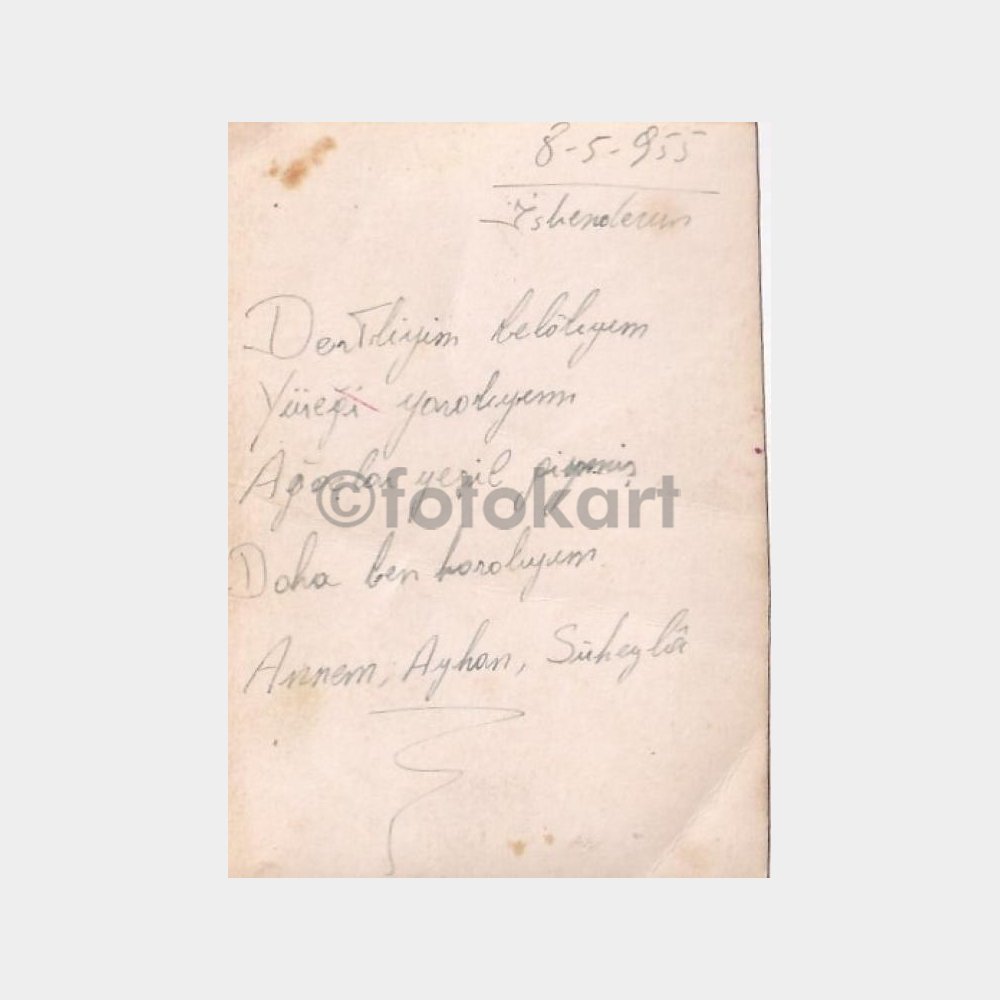 8-5-955
İskenderun
Dertliyim belâlıyım
Yüreği yaralıyım
Ağaçlar yeşil giymiş
Daha ben karalıyım.
Annem, Ayhan, Süheylâ
©fotokart